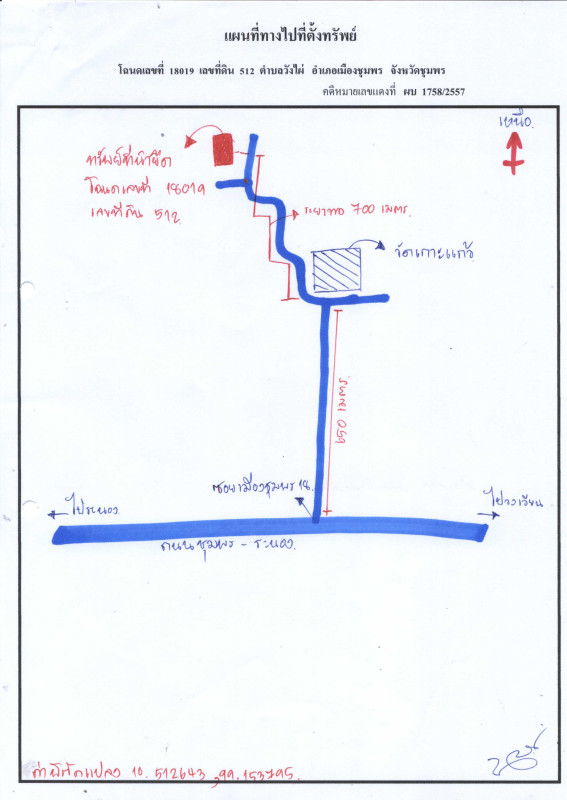 แผนที่ทางไปที่ตั้งทรัพย์
โฉนดเลขที่ 18019 เลขที่ดิน 512 ตำบลวังไผ่ อำเภอเมืองชุมพร จังหวัดชุมพร
คดีหมายเลขแดงที่ ผบ 1758/2557
เหนือ
ทรัพย์ที่นำยึด
โฉนดเลขที่ 18019
เลขที่ดิน 512
ระยะทาง 700 เมตร.
วัดเกาะแก้ว
650 เมตร
ซอยเมืองชุมพร 18.
ไประนอง
ไปวงเวียน
ถนนชุมพร - ระนอง
ค่าพิกัดแปลง 10.512643, 99.153795.